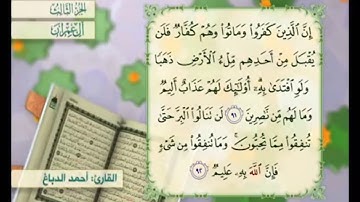 الجزء الثالث
آل عمران
إِنَّ الَّذِينَ كَفَرُوا وَمَاتُوا وَهُمْ كُفَّارٌ فَلَن
يُقْبَلَ مِنْ أَحَدِهِم مِّلْءُ الْأَرْضِ ذَهَبًا
وَلَوِ افْتَدَىٰ بِهِ أُولَٰئِكَ لَهُمْ عَذَابٌ أَلِيمٌ
وَمَا لَهُم مِّن نَّاصِرِينَ ٩١ لَن تَنَالُوا الْبِرَّ حَتَّىٰ
تُنفِقُوا مِمَّا تُحِبُّونَ ۚ وَمَا تُنفِقُوا مِن شَيْءٍ
فَإِنَّ اللَّهَ بِهِ عَلِيمٌ ٩٢
القارئ: أحمد الدباغ